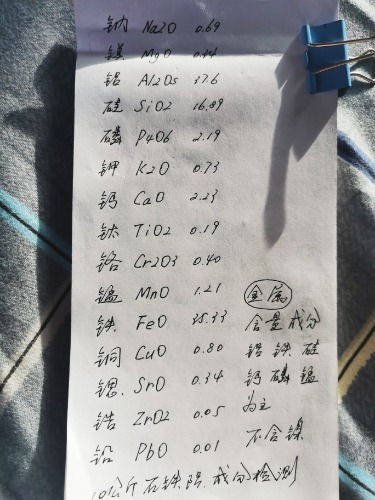 钠 Na2O 0.69
镁 MgO 0.44
铝 Al2O5 37.6
硅 SiO2 16.89
磷 P4O6 2.19
钾 K2O 0.73
钙 CaO 2.23
钛 TiO2 0.19
铬 Cr2O3 0.40
锰 MnO 1.21
铁 FeO 35.33
铜 CuO 0.80
锶 SrO 0.34
锆 ZrO2 0.05
铅 PbO 0.01
金属
含量成分
铝铁硅
钙磷锰
为主
不含镍
10公斤石铁陨成分检测